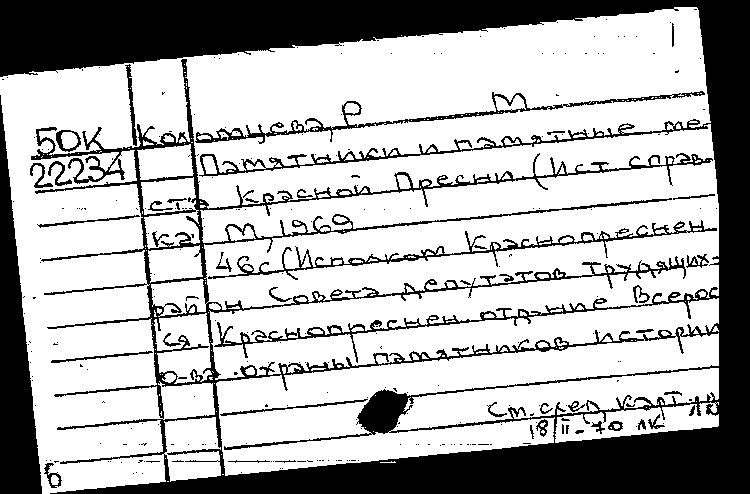 50К Коломцева, Р М
22234 Памятники и памятные ме-
ста Красной Пресни (Ист справ-
ка) М, 1969
46с (Исполком Краснопреснен
район Совета депутатов трудящих-
ся. Краснопреснен. отд-ние Всерос
о-ва охраны памятников истории
См. след, карт.
18/II-70 лк
б